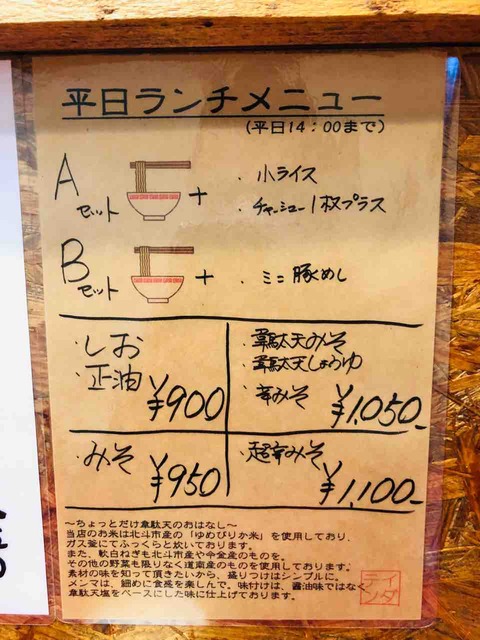 平日ランチメニュー
(平日14：00まで)
A
セット
+
・小ライス
・チャーシュー1枚プラス
B
セット
+
・ミニ豚めし
・しお
・正油
¥900
・韋駄天みそ
・韋駄天しょうゆ
・辛みそ
¥1,050-
・みそ
¥950
・超辛みそ
¥1,100-
～ちょっとだけ韋駄天のおはなし～
当店のお米は北斗市産の「ゆめぴりか米」を使用しており、
ガス釜にてふっくらと炊いております。
また、軟白ねぎも北斗市産や今金産のものを。
その他の野菜も限りなく道南産のものを使用しております。
素材の味を知って頂きたいから、盛りつけはシンプルに。
メンマは、細めに食感を楽しんで、味付けは、醤油味ではなく
韋駄天塩をベースにした味に仕上げております。